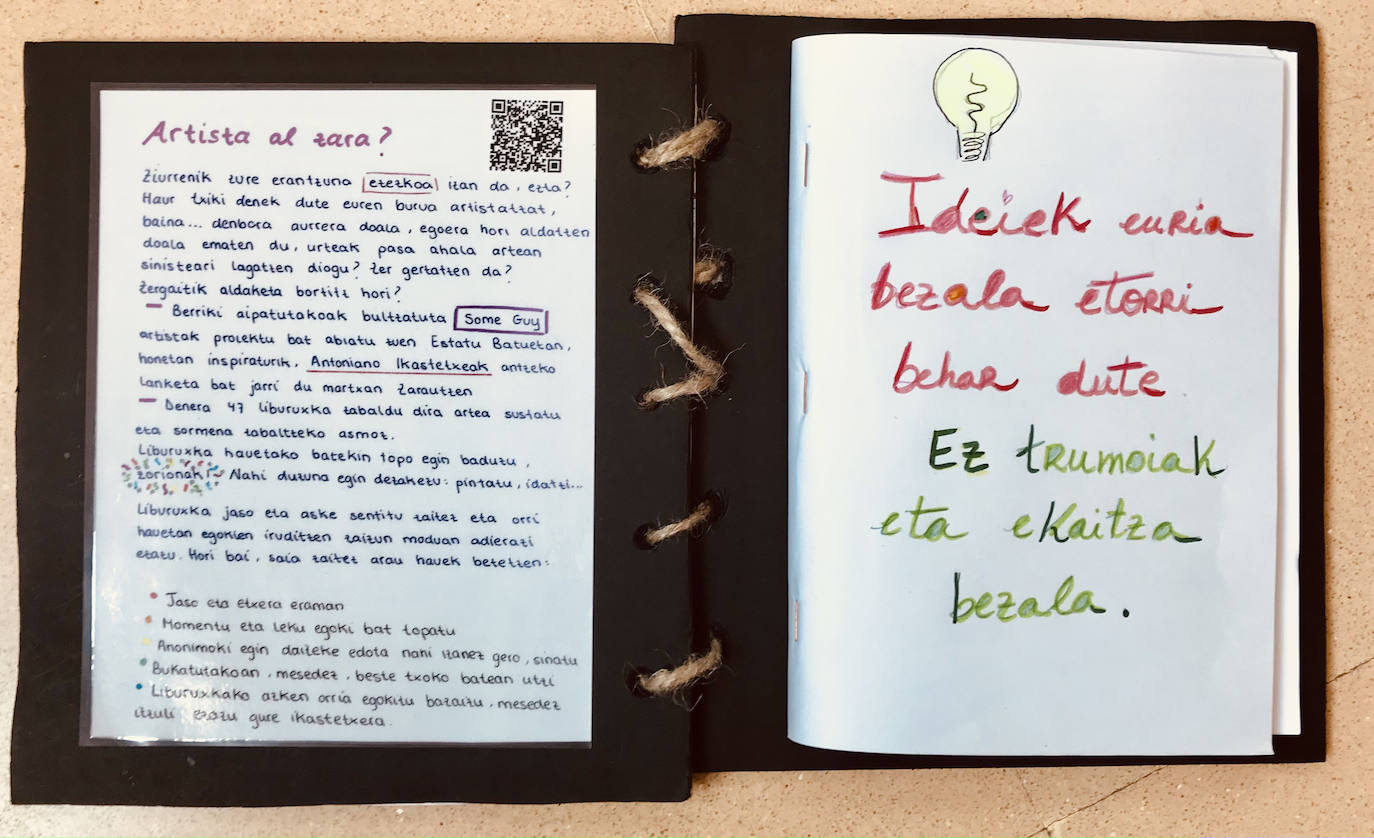 Artista al zara?
Ziurrenik zure erantzuna ezezkoa izan da, ezta?
Haur txiki denek dute euren burua artistatzat,
baina... denbora aurrera doala, egoera hori aldatzen
doala ematen du, urteak pasa ahala artean
sinisteari lagatzen diogu? Zer gertatzen da?
Zergaitik aldaketa bortitz hori?
– Berriki aipatutakoak bultzatuta Some Guy
artistak proiektu bat abiatu zuen Estatu Batuetan,
honetan inspiraturik, Antoniano Ikastetxeak antzeko
lanketa bat jarri du martxan Zarautzen
– Denera 47 liburuxka zabaldu dira artea sustatu
eta sormena zabaltzeko asmoz.
Liburuxka hauetako batekin topo egin baduzu,
zorionak! Nahi duzuna egin dezakezu: pintatu, idatzi...
Liburuxka jaso eta aske sentitu zaitez eta orri
hauetan egokien iruditzen zaizun moduan adierazi
ezazu. Hori bai, saia zaitez arau hauek betetzen:
• Jaso eta etxera eraman
• Momentu eta leku egoki bat topatu
• Anonimoki egin daiteke edota nahi izanez gero, sinatu
• Bukatutakoan, mesedez, beste txoko batean utzi
• Liburuxkako azken orria egokitu bazaizu, mesedez
itzuli ezazu gure ikastetxera.
Ideiek euria
bezala etorri
behar dute
Ez trumoiak
eta ekaitza
bezala.